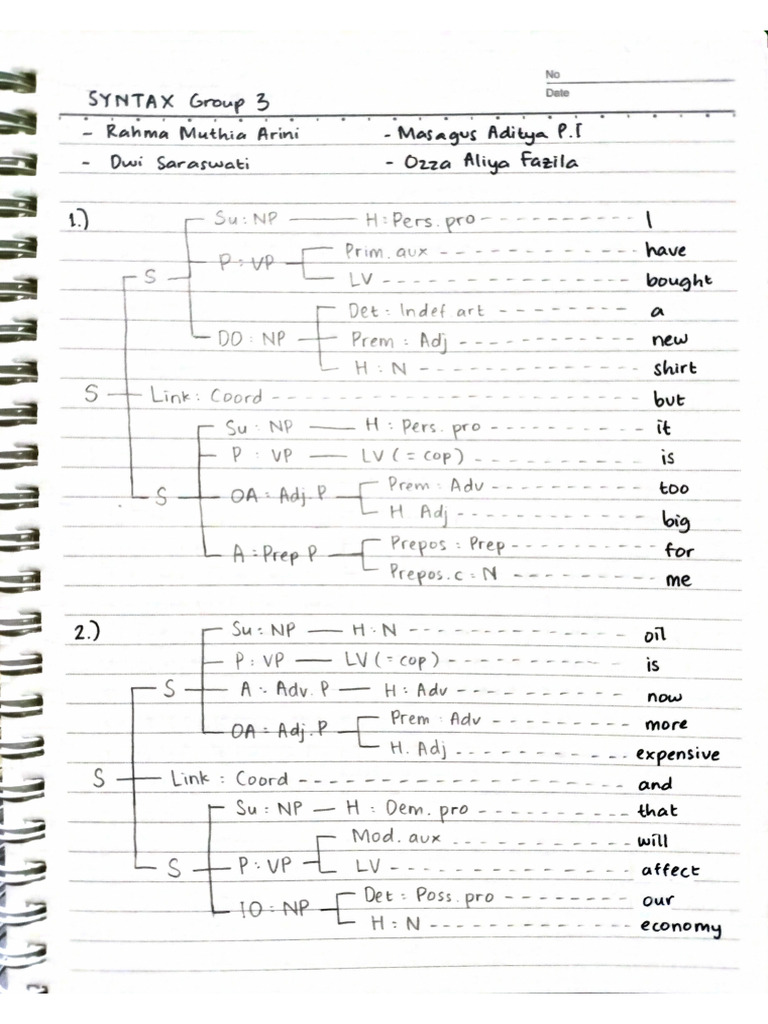 No
Date
SYNTAX Group 3
- Rahma Muthia Arini - Masagus Aditya P.I
- Dwi Saraswati - Ozza Aliya Fazila
1.) Su : NP H : Pers. pro I
P : VP Prim. aux have
S LV bought
Det : Indef art a
DO : NP Prem : Adj new
H : N shirt
S Link : Coord but
Su : NP H : Pers. pro it
P : VP LV (= cop) is
S OA : Adj. P Prem : Adv too
H. Adj big
A : Prep P Prepos : Prep for
Prepos.c : N me
2.) Su : NP H : N oil
P : VP LV (= cop) is
S A : Adv. P H : Adv now
OA : Adj. P Prem : Adv more
H. Adj expensive
S Link : Coord and
Su : NP H : Dem. pro that
Mod. aux will
S P : VP LV affect
IO : NP Det : Poss. pro our
H : N economy